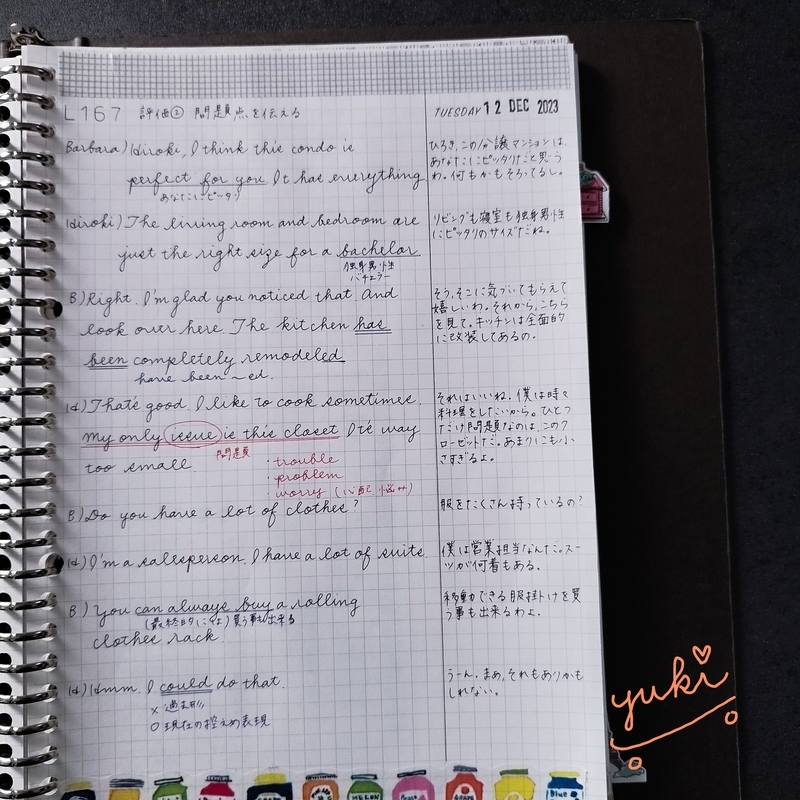 L167 評価② 問題点を伝える
TUESDAY 12 DEC 2023
Barbara) Hiroki, I think this condo is
perfect for you. It has everything
あなたにピッタリ
Hiroki) The living room and bedroom are
just the right size for a bachelor.
独身男性
バチェラー
B) Right. I'm glad you noticed that. And
look over here. The kitchen has
been completely remodeled.
have been ~ ed.
H) That's good. I like to cook sometimes.
My only issue is this closet. It's way
too small.
問題
・trouble
・problem
・worry (心配 悩み)
B) Do you have a lot of clothes?
H) I'm a salesperson. I have a lot of suits.
B) You can always buy a rolling
(最終的には) 買う事も出来る
clothes rack.
H) Hmm. I could do that.
× 過去形
○ 現在の控えめ表現
ひろき、この分譲マンションは、
あなたにピッタリだと思う
わ。何もかもそろってるし。
リビングも寝室も独身男性
にピッタリのサイズだね。
そう、そこに気づいてもらえて
嬉しいわ。それから、こちら
を見て。キッチンは全面的
に改装してあるの。
それはいいね。僕は時々
料理をしたいから。ひとつ
だけ問題なのは、このク
ローゼットだ。あまりにも小
さすぎるよ。
服をたくさん持っているの?
僕は営業担当なんだ。スー
ツが何着もある。
移動できる服掛けを買
う事も出来るわよ。
うーん。まぁ、それもありかも
しれない。
yuki
MELON
GRAPE
Blue